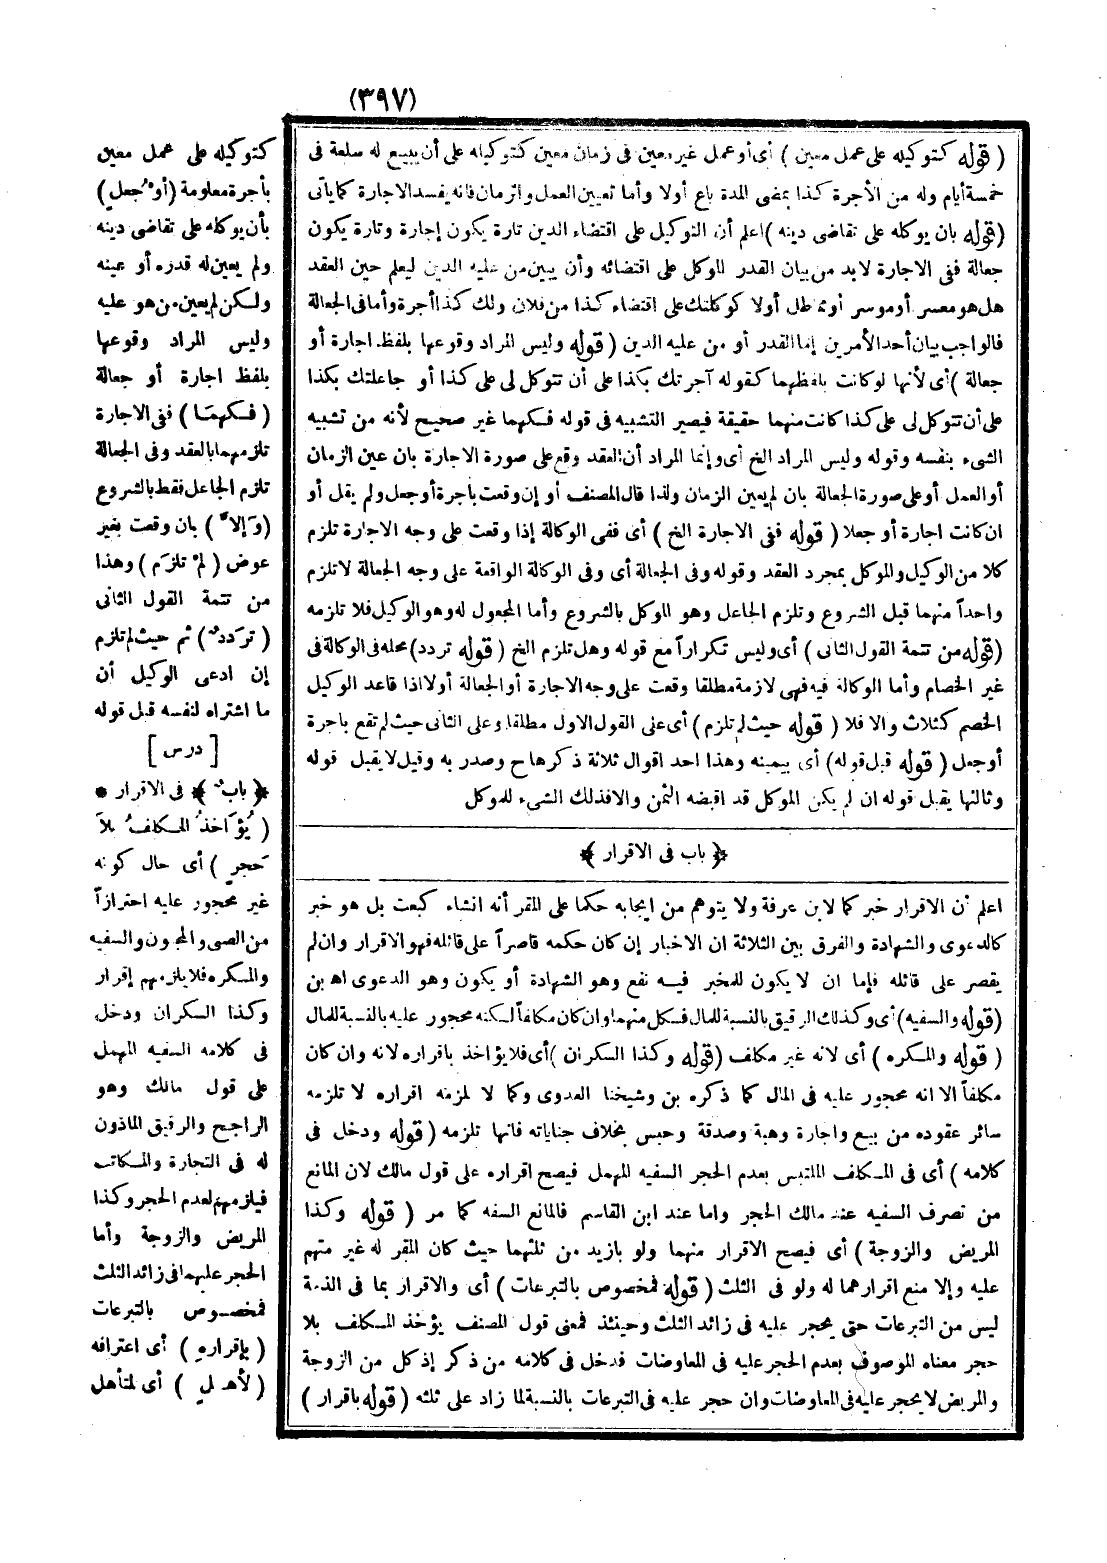 (٣٩٧)
( قوله كتوكيله على عمل معين ) أى أو عمل غير معين فى زمان معين كتوكيله على أن يبيع له سلعة فى
خمسة أيام وله من الأجرة كذا بمضى المدة باع أولا وأما تعيين العمل والزمان فانه يفسد الاجارة كما يأتى
(قوله بان يوكله على تقاضى دينه ) اعلم أن التوكيل على اقتضاء الدين تارة يكون إجارة وتارة يكون
جعالة ففى الاجارة لابد من بيان القدر للوكل على اقتضائه وأن يبين من عليه الدين ليعلم حين العقد
هل هو معسر أو موسر أو مماطل أولا كوكلتك على اقتضاء كذا من فلان ولك كذا أجرة وأما فى الجعالة
فالواجب بيان أحد الأمرين إما القدر أو من عليه الدين ( قوله وليس المراد وقوعها بلفظ اجارة أو
جعالة ) أى لأنها لو كانت بلفظهما كقوله آجرتك بكذا على أن تتوكل لى على كذا أو جاعلتك بكذا
على أن تتوكل لى على كذا كانت منهما حقيقة فيصير التشبيه فى قوله فكهما غير صحيح لأنه من تشبيه
الشىء بنفسه وقوله وليس المراد الخ أى وإنما المراد أن العقد وقع على صورة الاجارة بان عين الزمان
أو العمل أو على صورة الجعالة بان لم يعين الزمان ولذا قال المصنف أو إن وقعت بأجرة أو جعل ولم يقل أو
ان كانت اجارة أو جعلا ( قوله ففى الاجارة الخ ) أى ففى الوكالة إذا وقعت على وجه الاجارة تلزم
كلا من الوكيل والموكل بمجرد العقد وقوله وفى الجعالة أى وفى الوكالة الواقعة على وجه الجعالة لا تلزم
واحداً منهما قبل الشروع وتلزم الجاعل وهو الموكل بالشروع وأما المجعول له وهو الوكيل فلا تلزمه
(قوله من تتمة القول الثانى ) أى وليس تكراراً مع قوله وهل تلزم الخ ( قوله تردد) محله فى الوكالة فى
غير الخصام وأما الوكالة فيه فهى لازمة مطلقا وقعت على وجه الاجارة أو الجعالة أولا اذا قاعد الوكيل
الخصم كثلاث والا فلا ( قوله حيث لم تلزم ) أى على القول الاول مطلقا وعلى الثانى حيث لم تقع باجرة
أو جعل ( قوله قبل قوله) أى بيمينه وهذا احد اقوال ثلاثة ذكرها ح وصدر به وقيل لا يقبل قوله
وثالثها يقبل قوله ان لم يكن الموكل قد اقبضه الثمن والا فذلك الشىء للموكل
﴿ باب فى الاقرار ﴾
اعلم أن الاقرار خبر كما لابن عرفة ولا يتوهم من ايجابه حكما على المقر أنه انشاء كبعت بل هو خبر
كالدعوى والشهادة والفرق بين الثلاثة ان الاخبار إن كان حكمه قاصراً على قائله فهو الاقرار وان لم
يقصر على قائله فإما ان لا يكون للمخبر فيه نفع وهو الشهادة أو يكون وهو الدعوى اه بن
(قوله والسفيه) أى وكذلك الرقيق بالنسبة للمال فكل منهما وان كان مكلفاً لسكنه محجور عليه بالنسبة للمال
( قوله والمكره ) أى لانه غير مكلف (قوله وكذا السكران ) أى فلا يؤاخذ باقراره لانه وان كان
مكلفاً الا انه محجور عليه فى المال كما ذكره بن وشيخنا العدوى وكما لا يلزمه اقراره لا تلزمه
سائر عقوده من بيع واجارة وهبة وصدقة وحبس بخلاف جناياته فانها تلزمه ( قوله ودخل فى
كلامه ) أى فى المكلف الملتبس بعدم الحجر السفيه المهمل فيصح اقراره على قول مالك لان المانع
من تصرف السفيه عند مالك الحجر واما عند ابن القاسم فالمانع السفه كما مر ( قوله وكذا
المريض والزوجة ) أى فيصح الاقرار منهما ولو بازيد من ثلثهما حيث كان المقر له غير متهم
عليه وإلا منع اقرارهما له ولو فى الثلث ( قوله فمخصوص بالتبرعات ) أى والاقرار بما فى الذمة
ليس من التبرعات حتى يحجر عليه فى زائد الثلث وحينئذ فمعنى قول المصنف يؤخذ المكلف بلا
حجر معناه الموصوف بعدم الحجر عليه فى المعاوضات فدخل فى كلامه من ذكر إذ كل من الزوجة
والمريض لا يحجر عليه فى المعاوضات وان حجر عليه فى التبرعات بالنسبة لما زاد على ثلثه ( قوله باقرار )
كتوكيله على عمل معين
بأجرة معلومة (أو جُعل)
بأن يوكله على تقاضى دينه
ولم يعين له قدره أو عينه
ولكن لم يعين من هو عليه
وليس المراد وقوعها
بلفظ اجارة أو جعالة
( فكهما ) ففى الاجارة
تلزمهما بالعقد وفى الجعالة
تلزم الجاعل فقط بالشروع
(وَإلا ) بان وقعت بغير
عوض ( لمْ تلزَم ) وهذا
من تتمة القول الثانى
( تَردد ) ثم حيث لم تلزم
إن ادعى الوكيل أن
ما اشتراه لنفسه قبل قوله
[ درس ]
﴿ باب ﴾ فى الاقرار *
( يُؤَاخذُ المكلفُ بلاَ
حَجرٍ ) أى حال كونه
غير محجور عليه احترازاً
من الصبى والمجنون والسفيه
والمكره فلا يلزمهم إقرار
وكذا السكران ودخل
فى كلامه السفيه المهمل
على قول مالك وهو
الراجح والرقيق الماذون
له فى التجارة والمكاتب
فيلزمهم لعدم الحجر وكذا
المريض والزوجة وأما
الحجر عليهما فى زائد الثلث
فمخصوص بالتبرعات
( بإقرارهِ ) أى اعترافه
( لأهلٍ ) أى لمتأهل